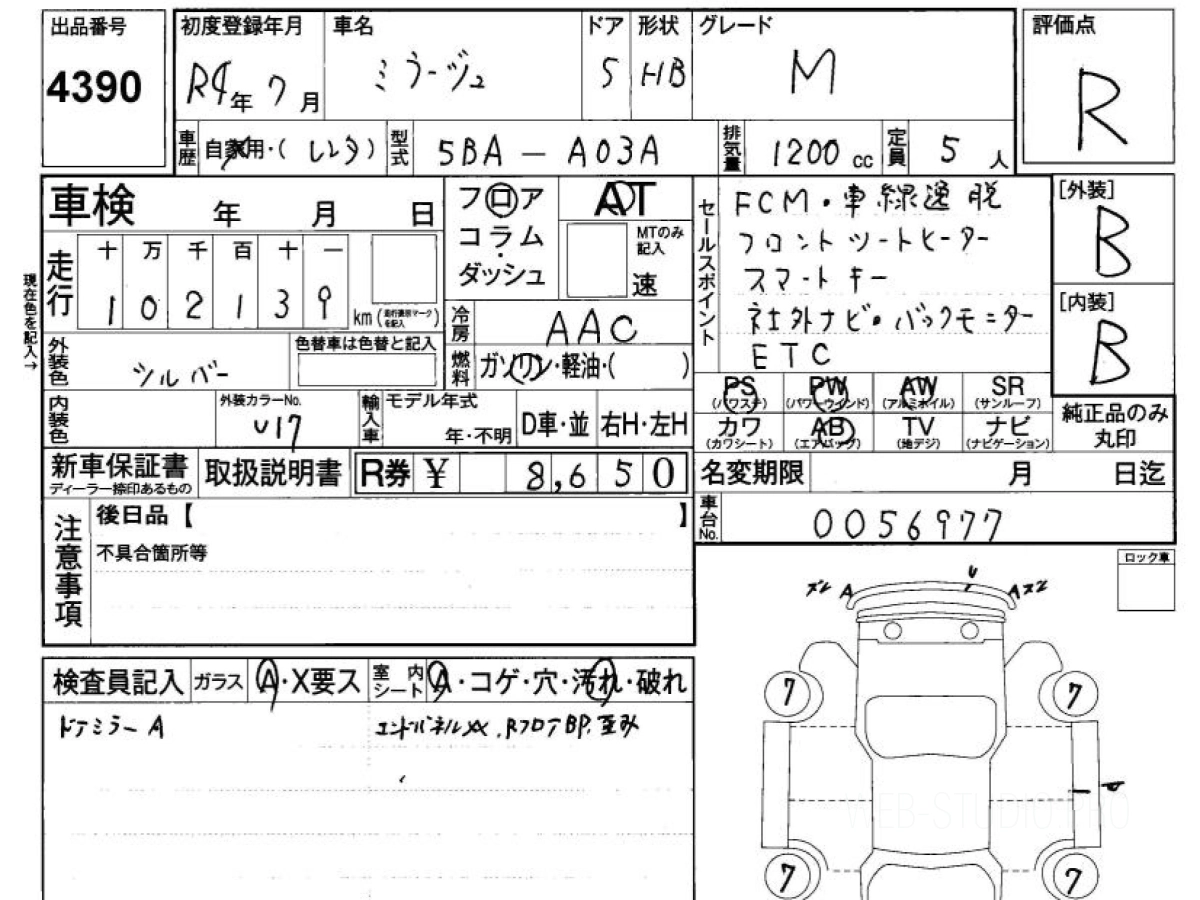 出品番号 初度登録年月 車名 ドア 形状 グレード 評価点
4390 R4年 7月 ミラージュ 5 HB M R
車歴 自家用・( レンタ) 型式 5BA-A03A 排気量 1200cc 定員 5人
車検 年 月 日
フロア
コラム
・
ダッシュ
AT
MTのみ記入
速
走行 十 万 千 百 十 一
1 0 2 1 3 9 km (走行表示マークを記入)
現在色を記入→
セールスポイント
FCM・車線逸脱
フロントシートヒーター
スマートキー
社外ナビ・バックモニター
ETC
[外装]
B
[内装]
B
冷房 AAC
外装色 シルバー
色替車は色替と記入
燃料 ガソリン・軽油・( )
PS (パワステ) PW (パワーウインド) AW (アルミホイル) SR (サンルーフ)
カワ (カワシート) AB (エアバッグ) TV (地デジ) ナビ (ナビゲーション)
純正品のみ丸印
内装色 外装カラーNo. U17
輸入車 モデル年式 年・不明 D車・並 右H・左H
新車保証書 ディーラー捺印あるもの 取扱説明書 R券 ¥ 8,650
名変期限 月 日迄
車台No. 0056977
注意事項 後日品【 】
不具合箇所等
ロック車
ズレ A U A ズレ
検査員記入 ガラス A・X要ス 室内シート A・コゲ・穴・汚れ・破れ
ドアミラーA エンドパネルXX, RフロアBP歪み
7 7
7 7
WEB-STUDIO.PRO